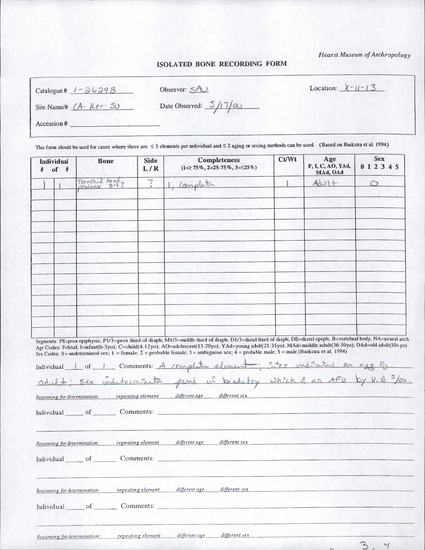 Hearst Museum of Anthropology
ISOLATED BONE RECORDING FORM
Catalogue #: 1-26298 Observer: SAW Location: X-11-13
Site Name/#: CA-Ker-50 Date Observed: 5/17/00
Accession #:
This form should be used for cases where there are ≤ 5 elements per individual and ≤ 2 aging or sexing methods can be used. (Based on Buikstra et al. 1994)
Individual Bone Side Completeness Ct/Wt Age Sex
# of # L / R (1=≥75%, 2=25-75%, 3=≤25%) F, I, C, AO, YAd, MAd, OAd 0 1 2 3 4 5
1 1 Terminal hand phalanx ? 1, complete 1 Adult 0
Segments: PE=prox epiphysis; P1/3=prox third of diaph; M1/3=middle third of diaph; D1/3=distal third of diaph; DE=distal epiph; B=vertebral body, NA=neural arch
Age Codes: F=fetal, I=infant(0-3yo); C=child(4-12yo); AO=adolescent(13-20yo); YAd=young adult(21-35yo); MAd=middle adult(36-50yo); OAd=old adult(50+yo)
Sex Codes: 0 = undetermined sex; 1 = female; 2 = probable female; 3 = ambiguous sex; 4 = probable male; 5 = male (Buikstra et al. 1994)
Individual 1 of 1 Comments: A complete element; Size indicates an age of
adult; Sex indeterminate found in basketry which is an AFO by V.B 5/00.
Reasoning for determination: repeating element different age different sex
Individual of Comments:
Reasoning for determination: repeating element different age different sex
Individual of Comments:
Reasoning for determination: repeating element different age different sex
Individual of Comments:
Reasoning for determination: repeating element different age different sex